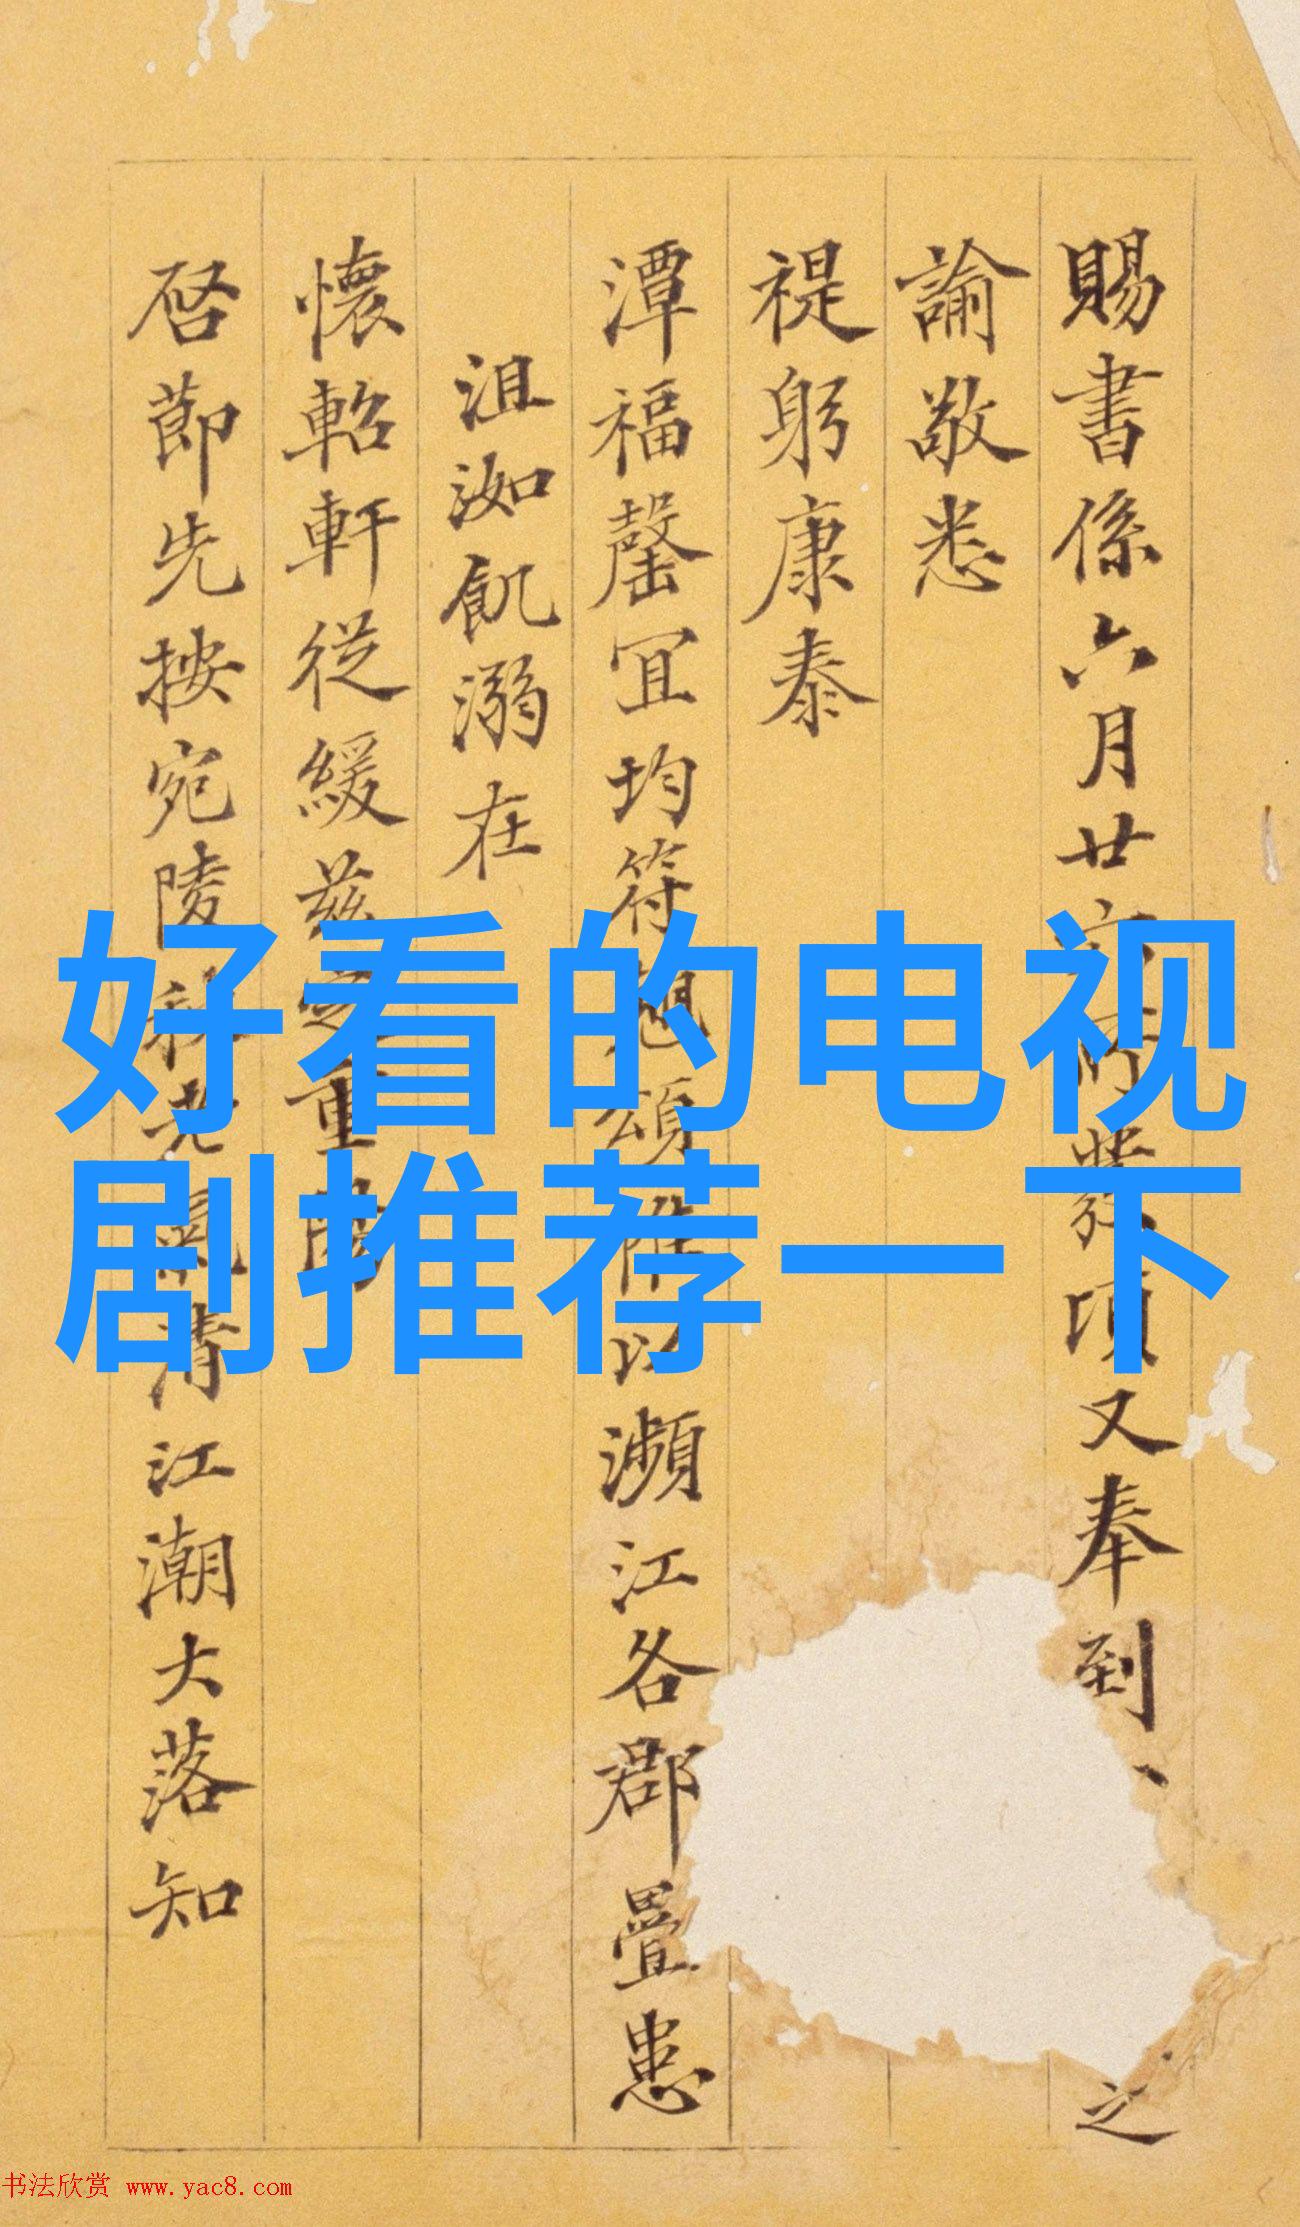 好看的电视
剧推荐一下
賜書係六月廿六
項又奉到
之
諭敬悉
禔躬康泰
潭福罄宜均符
頌
以瀕江各郡疊患
沮洳飢溺在
懷軺軒從緩茲
重
啓節先按宛陵
清江潮大落知
书法欣赏 www.yac8.com